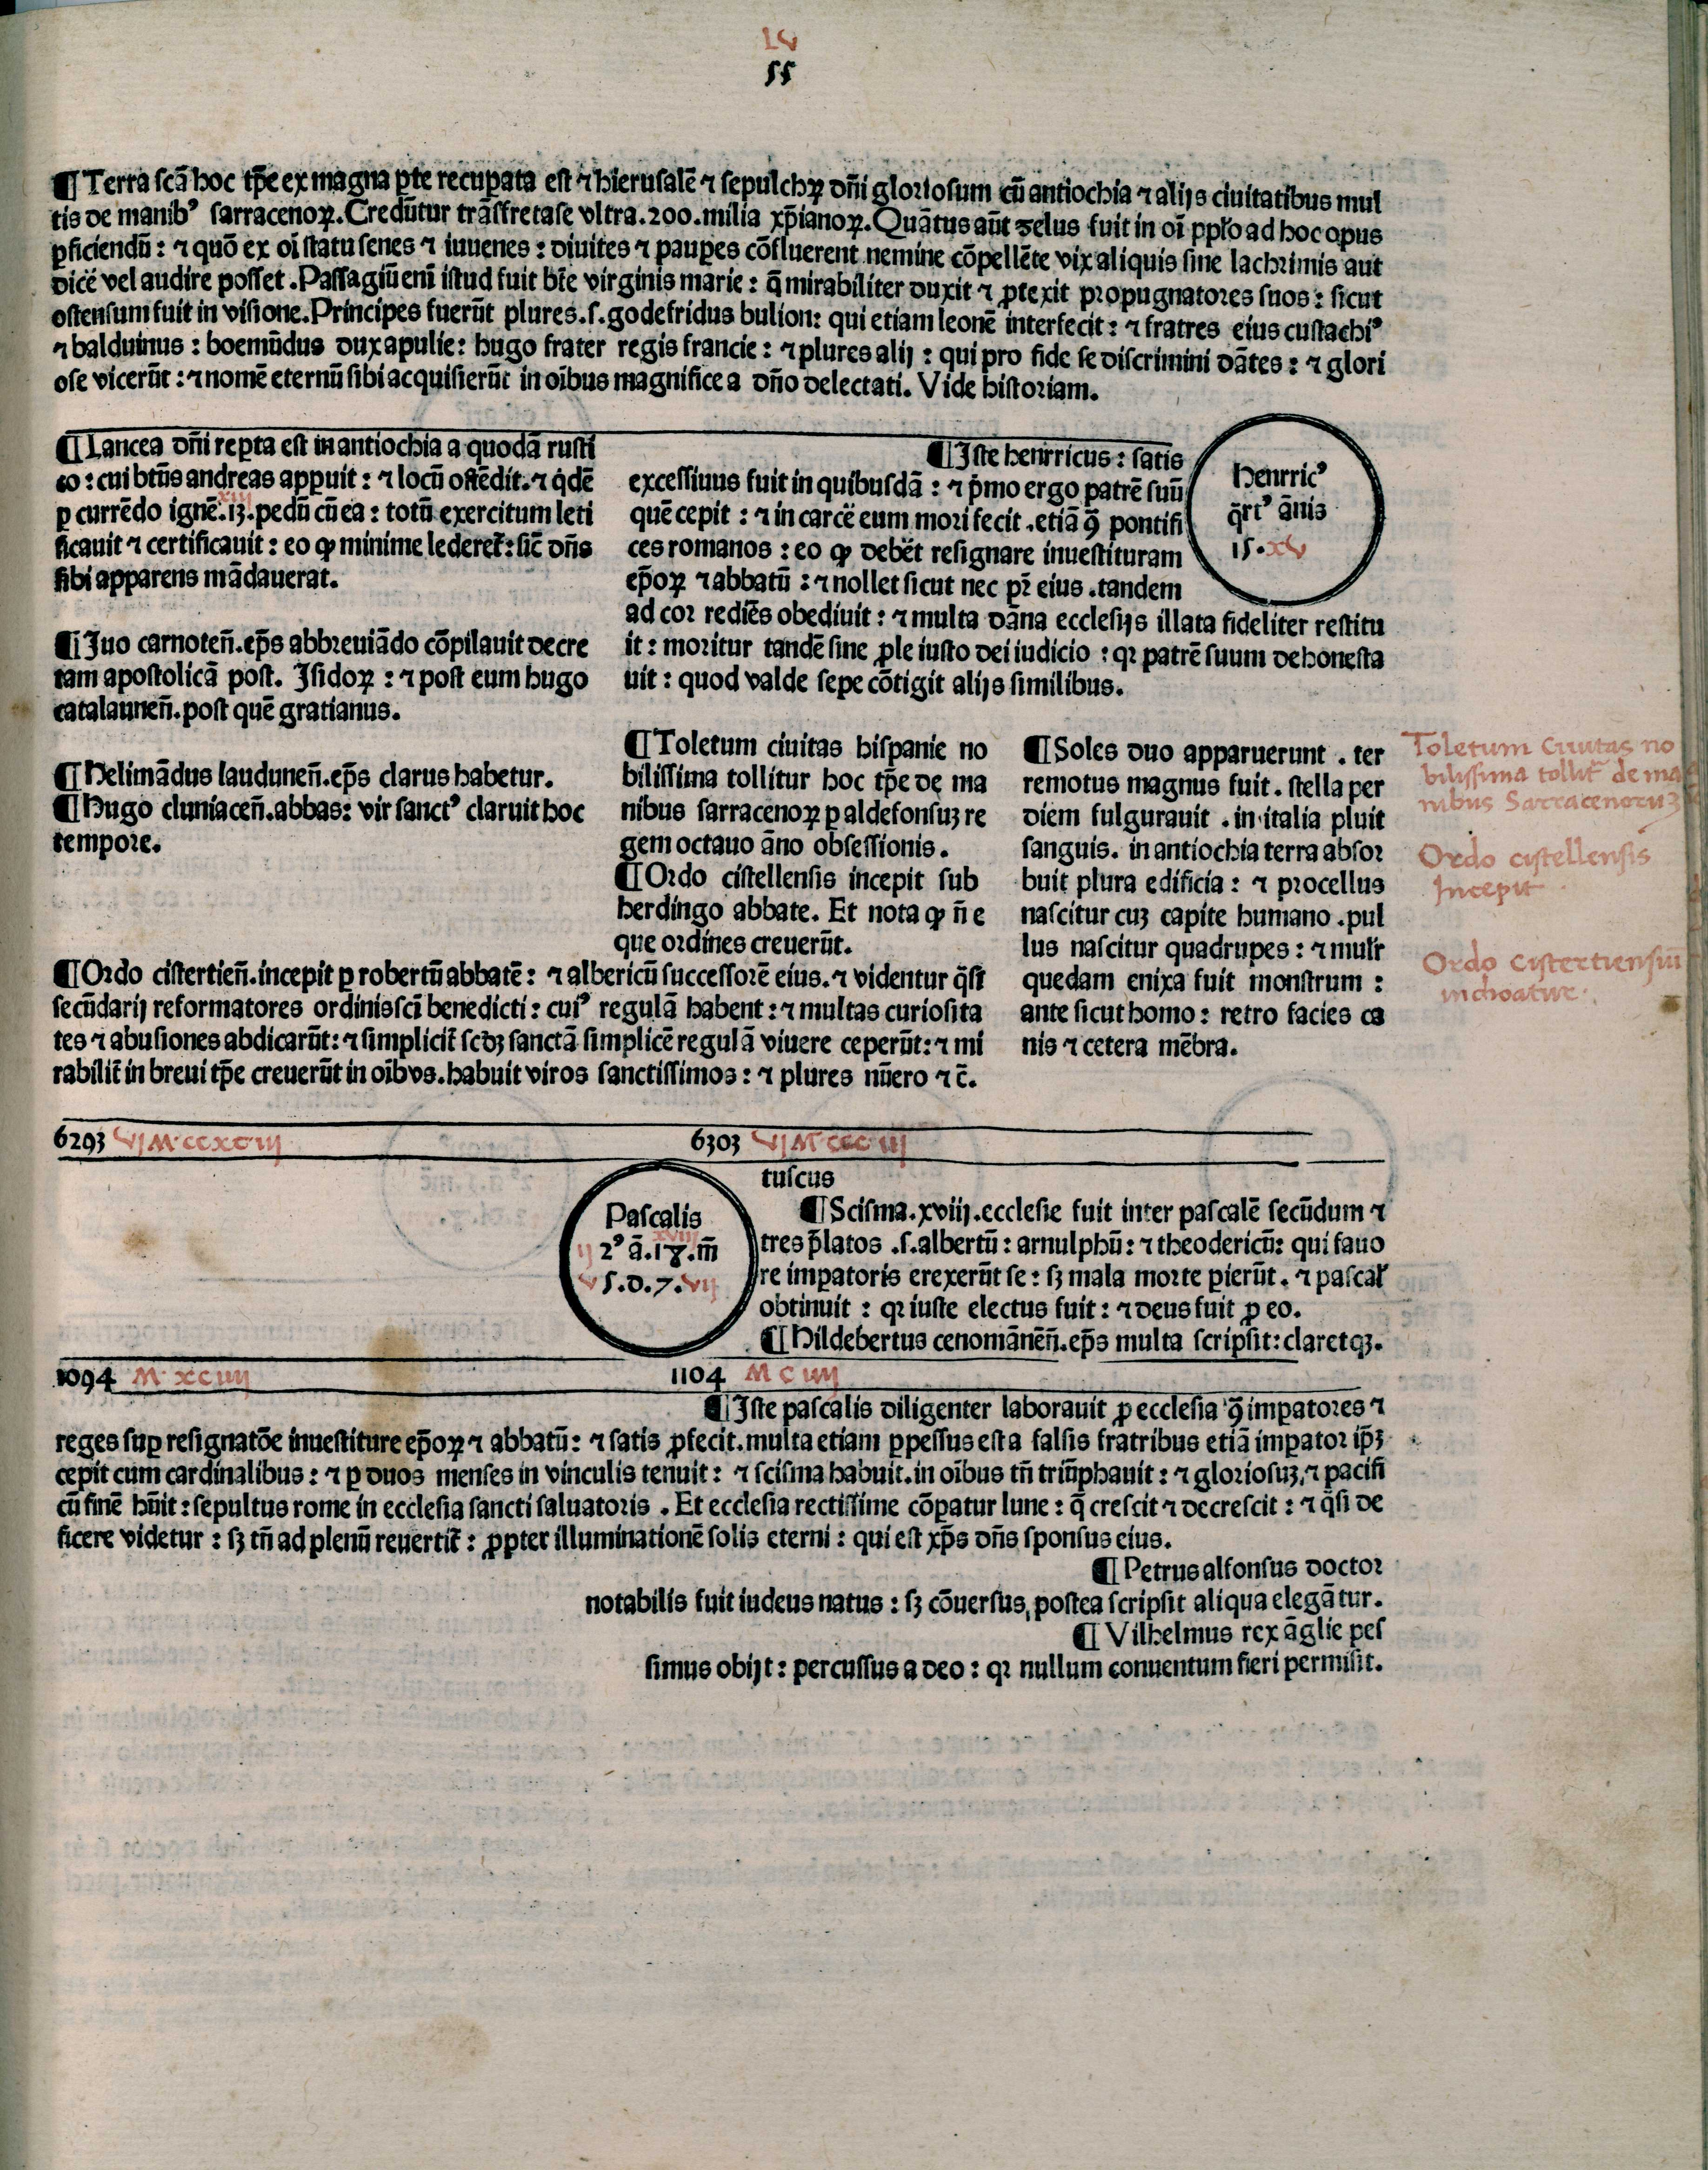 LV
55
¶ Terra scā hoc tp̄e ex magna ꝑte recuꝑata est ⁊ hierusalē ⁊ sepulchꝝ dn̄i gloriosum cū antiochia ⁊ alijs ciuitatibus mul
tis de manibꝰ sarracenoꝝ. Credūtur trāsfretase vltra .200. milia xp̄ianoꝝ. Quātus aūt zelus fuit in oī ppl̄o ad hoc opus
ꝑficiendū : ⁊ quō ex oī statu senes ⁊ iuuenes : diuites ⁊ pauꝑes cōfluerent nemine cōpellēte vix aliquis sine lachrimis aut
dicē vel audire posset . Passagiū enī istud fuit bt̄e virginis marie : q̄ mirabiliter duxit ⁊ ꝓtexit propugnatores suos : sicut
ostensum fuit in visione. Principes fuerūt plures .s. godefridus bulion: qui etiam leonē interfecit : ⁊ fratres eius custachiꝰ
⁊ balduinus : boemūdus dux apulie: hugo frater regis francie : ⁊ plures alij : qui pro fide se discrimini dātes : ⁊ glori
ose vicerūt : ⁊ nomē eternū sibi acquisierūt in oībus magnifice a dn̄o delectati. Vide historiam.
¶ Lancea dn̄i reꝑta est in antiochia a quodā rusti
co : cui bt̄us andreas apꝑuit : ⁊ locū ostēdit. ⁊ q̇dē
ꝑ currēdo ignē .13. pedū cū ea : totū exercitum leti
xiij
ficauit ⁊ certificauit : eo ꝙ minime lederet̄ : sic̄ dn̄s
sibi apparens mādauerat.
¶ Iuo carnoten̄. ep̄s abbreuiādo cōpilauit decre
tam apostolicā post. Isidoꝝ : ⁊ post eum hugo
catalaunen̄. post quē gratianus.
¶ Helimādus laudunen̄. ep̄s clarus habetur.
¶ Hugo cluniacen̄. abbas: vir sanctꝰ claruit hoc
tempore.
¶ Iste henrricus : satis
excessiuus fuit in quibusdā : ⁊ p̄mo ergo patrē suū
quē cepit : ⁊ in carcē eum mori fecit . etiā ꝯ̄ pontifi
ces romanos : eo ꝙ debēt resignare inuestituram
ep̄oꝝ ⁊ abbatū : ⁊ nollet sicut nec pr̄ eius . tandem
ad cor rediēs obediuit : ⁊ multa dāna ecclesijs illata fideliter restitu
it : moritur tandē sine ꝓle iusto dei iudicio : qꝛ patrē suum dehonesta
uit : quod valde sepe cōtigit alijs similibus.
Henrricꝰ
q̄rtꝰ ānis
15. xv
¶ Toletum ciuitas hispanie no
bilissima tollitur hoc tp̄e de ma
nibus sarracenoꝝ ꝑ aldefonsuꝫ re
gem octauo āno obsessionis.
¶ Ordo cistellensis incepit sub
herdingo abbate. Et nota ꝙ n̄ e
que ordines creuerūt.
¶ Soles duo apparuerunt . ter
remotus magnus fuit . stella per
diem fulgurauit . in italia pluit
sanguis. in antiochia terra absor
buit plura edificia : ⁊ procellus
nascitur cuꝫ capite humano . pul
lus nascitur quadrupes : ⁊ mulr̄
quedam enixa fuit monstrum :
ante sicut homo : retro facies ca
nis ⁊ cetera mēbra.
Toletum Ciuitas no
bilissima tollit̄ de ma
nibus Sarracenoruꝫ
Ordo cistellensis
Incepit
Ordo cistertiensiū
inchoatur.
¶ Ordo cistertien̄. incepit ꝑ robertū abbatē : ⁊ albericū successorē eius. ⁊ videntur q̄si
secūdarij reformatores ordinis sc̄i benedicti : cuiꝰ regulā habent : ⁊ multas curiosita
tes ⁊ abusiones abdicarūt: ⁊ simplicit̄ scd̄ꝫ sanctā simplicē regulā viuere ceperūt: ⁊ mi
rabilit̄ in breui tp̄e creuerūt in oībvs. habuit viros sanctissimos : ⁊ plures nūero ⁊ c̄.
6293 VI M·CCXCIII 6303 VI M CCC III
Pascalis
xviij
ij 2ꝰ ā .18. m̄
v 5. d. 7. vij
tuscus
¶ Scisma .xviij. ecclesie fuit inter pascalē secūdum ⁊
tres p̄latos .s. albertū : arnulphū : ⁊ theodericū: qui fauo
re imꝑatoris erexerūt se : sꝫ mala morte ꝑierūt. ⁊ pascal̄
obtinuit : qꝛ iuste electus fuit : ⁊ deus fuit ꝓ eo.
¶ Hildebertus cenomānēn̄. ep̄s multa scripsit: claretqꝫ.
1094 M·XCIIII 1104 M C IIII
¶ Iste pascalis diligenter laborauit ꝓ ecclesia ꝯ̄ imꝑatores ⁊
reges suꝑ resignatōe inuestiture ep̄oꝝ ⁊ abbatū : ⁊ satis ꝓfecit. multa etiam ꝑpessus est a falsis fratribus etiā imꝑator ip̄ꝫ
cepit cum cardinalibus : ⁊ ꝑ duos menses in vinculis tenuit : ⁊ scisma habuit. in oībus tn̄ triūphauit : ⁊ gloriosuꝫ, ⁊ pacifi
cū finē hūit : sepultus rome in ecclesia sancti saluatoris . Et ecclesia rectissime cōꝑatur lune : q̄ crescit ⁊ decrescit : ⁊ q̄si de
ficere videtur : sꝫ tn̄ ad plenū reuertit̄ : ꝓpter illuminationē solis eterni : qui est xp̄s dn̄s sponsus eius.
¶ Petrus alfonsus doctor
notabilis fuit iudeus natus : sꝫ cōuersus, postea scripsit aliqua elegātur.
¶ Vilhelmus rex āglie pes
simus obijt : percussus a deo : qꝛ nullum conuentum fieri permisit.